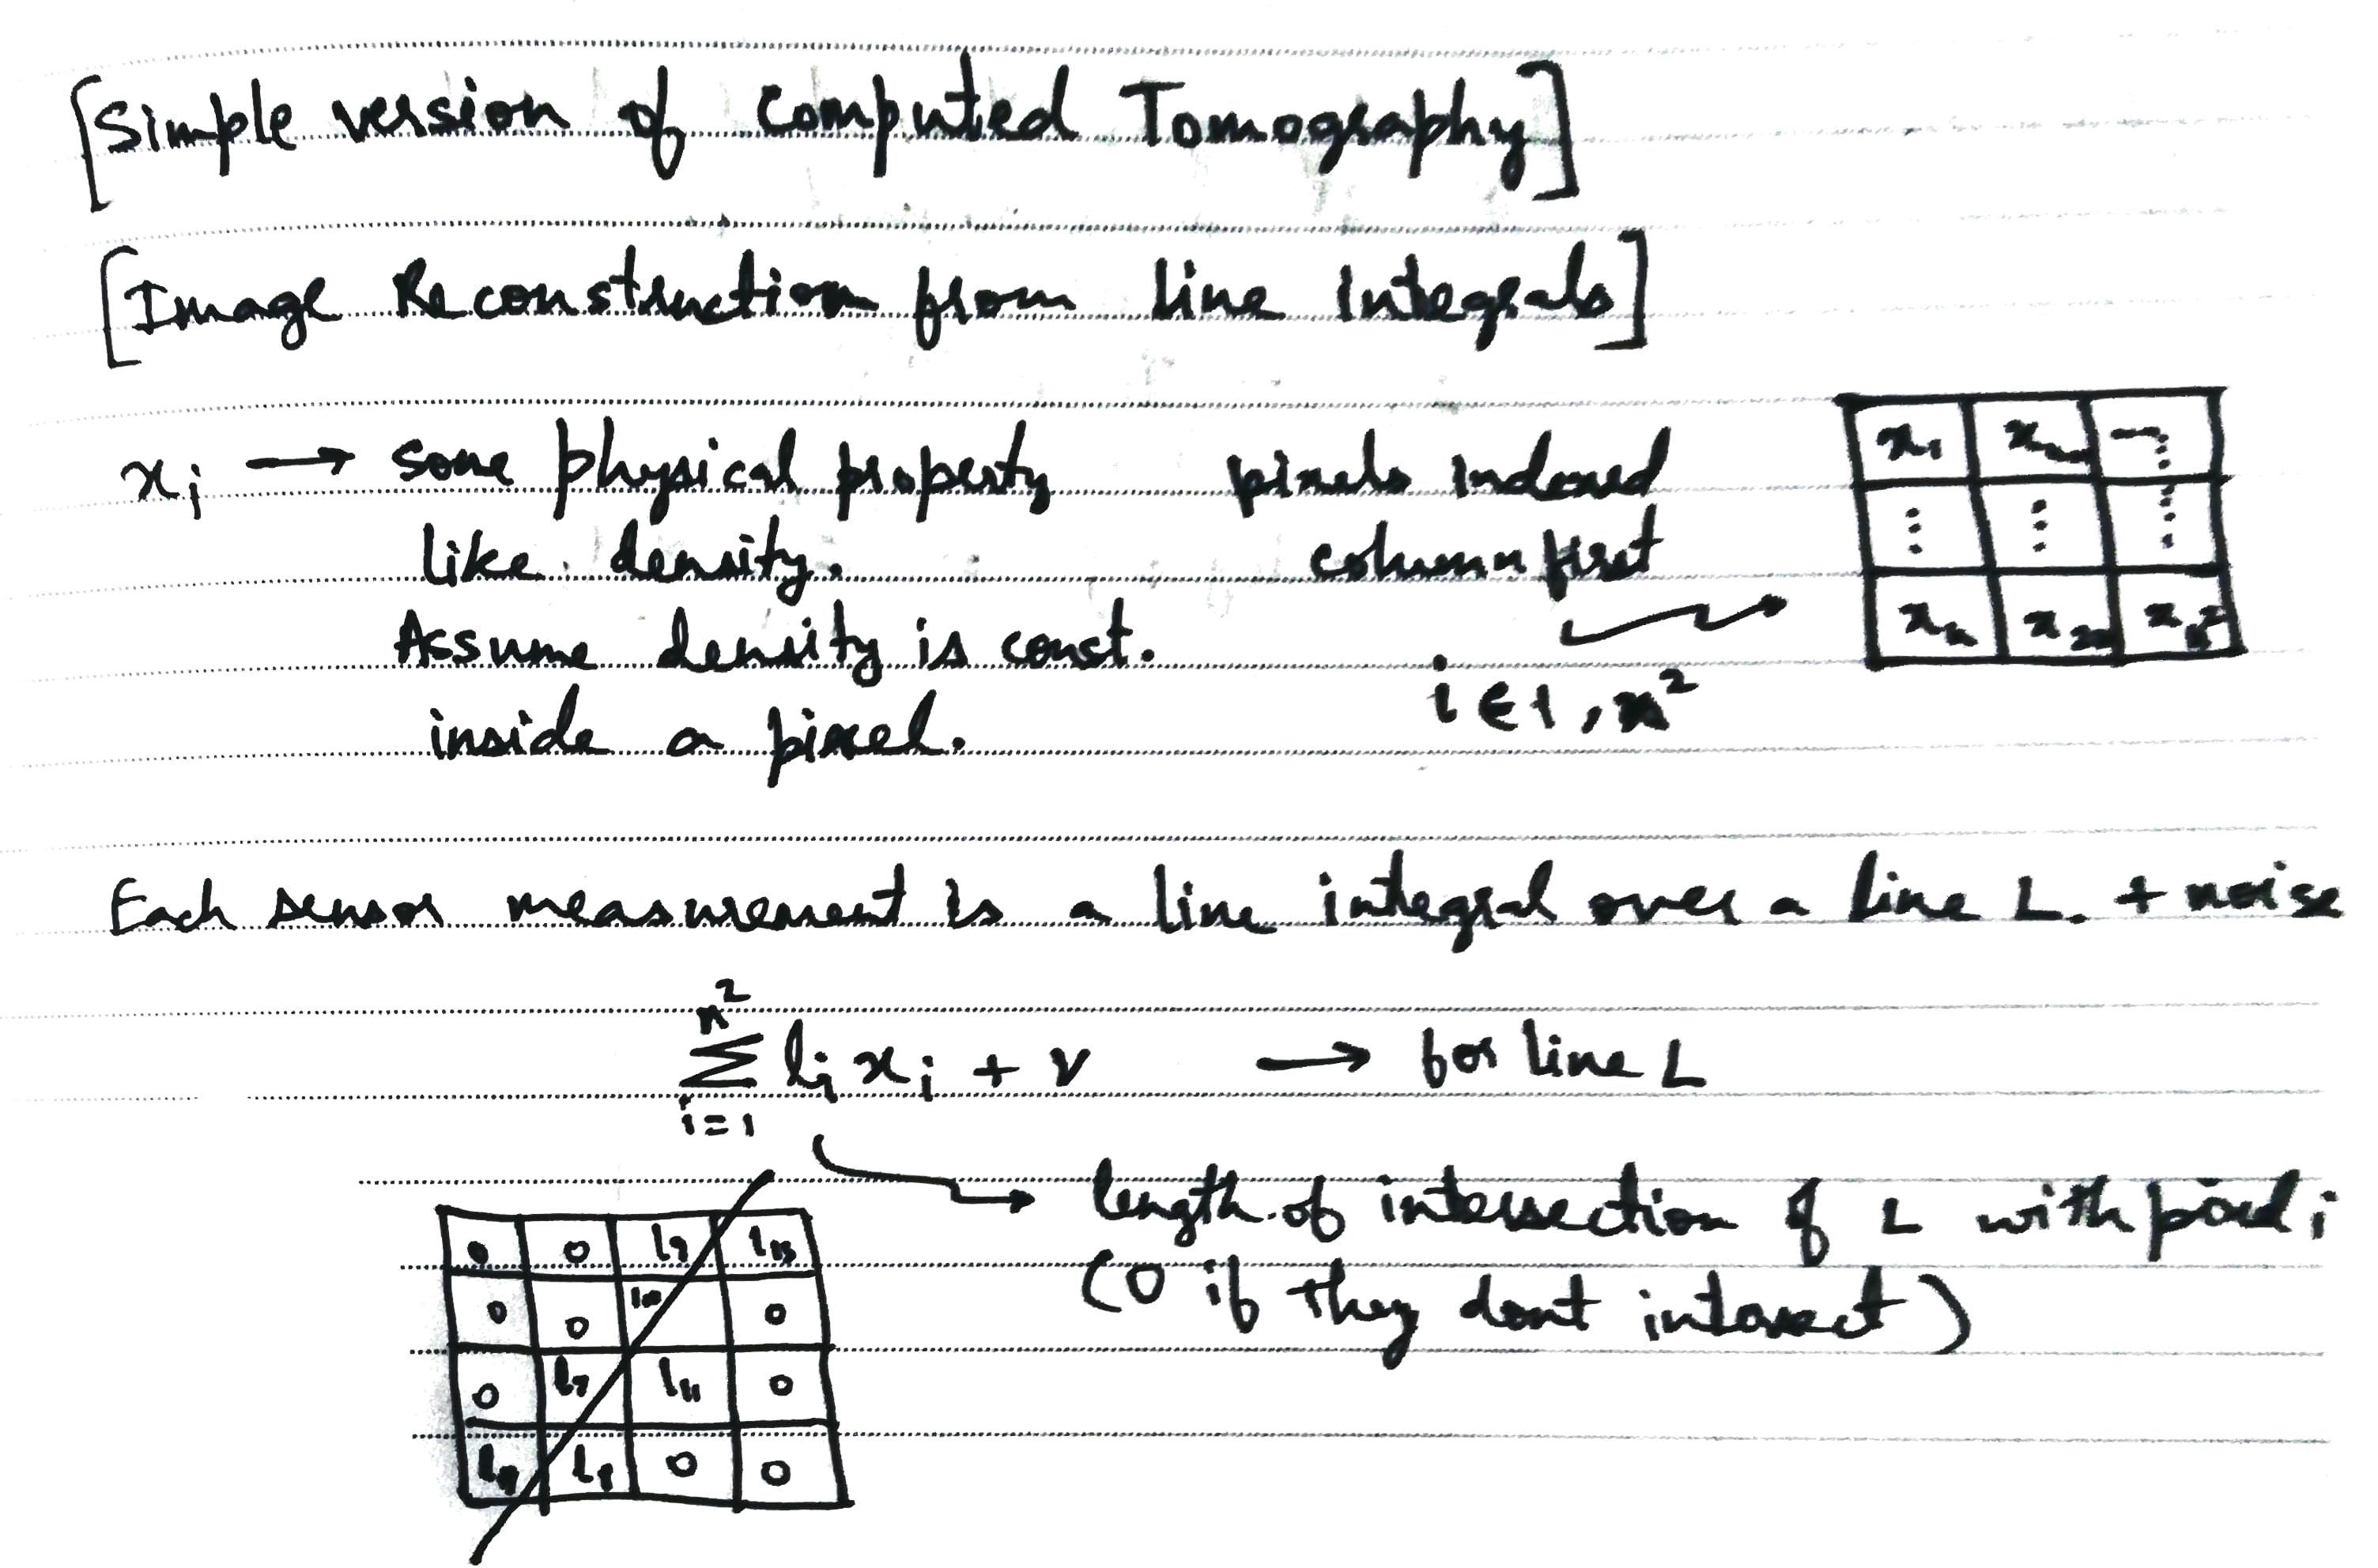 [Simple version of Computed Tomography]
[Image Reconstruction from line Integrals]
xᵢ → some physical property
like density.
Assume density is const.
inside a pixel.
pixels indexed
column first
i ∈ 1, n²
x₁
⋮ ⋮ ⋮
xₙ x₂ₙ xₙ²
Each sensor measurement is a line integral over a line L. + noise
n²
Σ lᵢ xᵢ + v → for line L
i=1
length of intersection of L with pixel i
(0 if they dont intersect)
0 0 l₉ l₁₃
0 0 l₁₀ 0
0 l₇ l₁₁ 0
l₄ l₈ 0 0